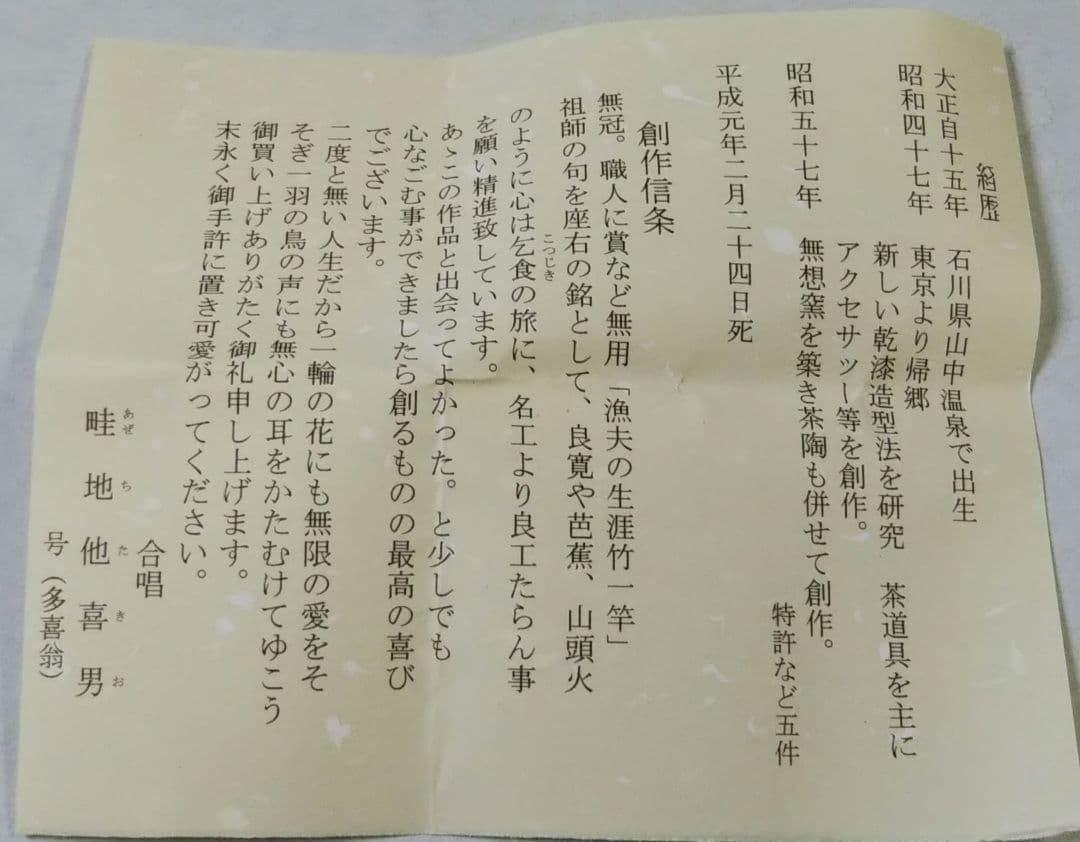 経歴
大正自十五年 石川県山中温泉で出生
昭和四十七年 東京より帰郷
新しい乾漆造型法を研究 茶道具を主に
アクセサッー等を創作。
昭和五十七年 無想窯を築き茶陶も併せて創作。
特許など五件
平成元年二月二十四日死
創作信条
無冠。職人に賞など無用「漁夫の生涯竹一竿」
祖師の句を座右の銘として、良寛や芭蕉、山頭火
のように心は乞食の旅に、名工より良工たらん事
こつじき
を願い精進致しています。
あゝこの作品と出会ってよかった。と少しでも
心なごむ事ができましたら創るものの最高の喜び
でございます。
二度と無い人生だから一輪の花にも無限の愛をそ
そぎ一羽の鳥の声にも無心の耳をかたむけてゆこう
御買い上げありがたく御礼申し上げます。
末永く御手許に置き可愛がってください。
合唱
畦地他喜男
あぜちたきお
号(多喜翁)